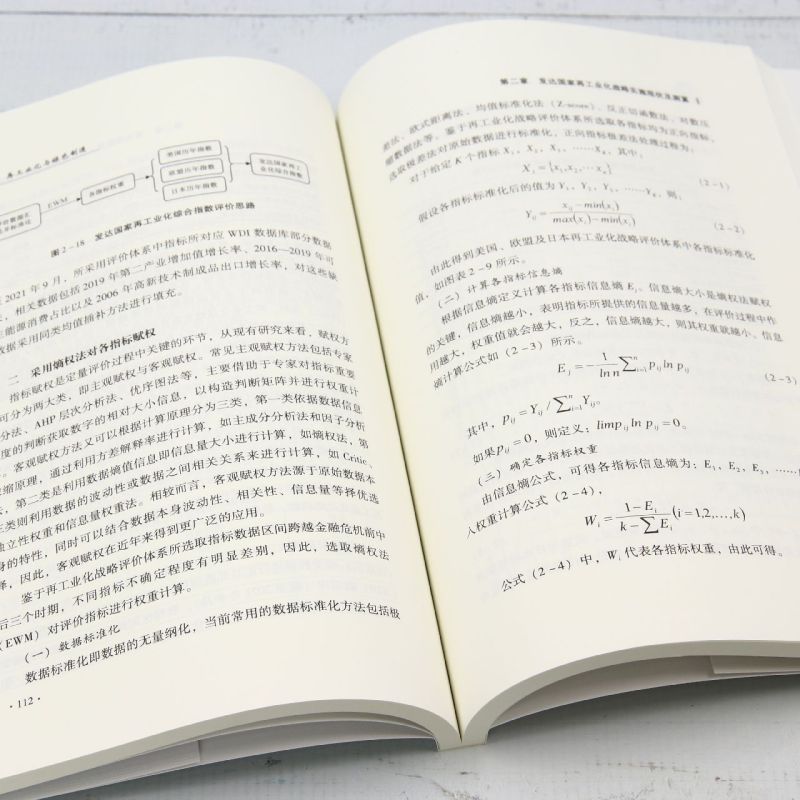 再工业化与绿色制造
美国历年指数
EWM
各指标权重
欧盟历年指数
发达国家再工
业化综合指数
日本历年指数
图2-18 发达国家再工业化综合指数评价思路
2021年9月,所采用评价体系中指标所对应WDI数据库部分数据
,相关数据包括2019年第二产业增加值增长率、2016—2019年可
生能源消费占比以及2006年高新技术制成品出口增长率,对这些缺
数据采用同类均值插补方法进行填充。
二 采用熵权法对各指标赋权
指标赋权是定量评价过程中关键的环节,从现有研究来看,赋权方
可分为两大类,即主观赋权与客观赋权。常见主观赋权方法包括专家
分法、AHP层次分析法、优序图法等,主要借助于专家对指标重要
度的判断获取数字的相对大小信息,以构造判断矩阵并进行权重计
。客观赋权方法又可以根据计算原理分为三类,第一类依据数据信息
缩原理,通过利用方差解释率进行计算,如主成分分析法和因子分析
,第二类是利用数据熵值信息即信息量大小进行计算,如熵权法,第
三类则利用数据的波动性或数据之间相关关系来进行计算,如Critic、
独立性权重和信息量权重法。相较而言,客观赋权方法源于原始数据本
身的特性,同时可以结合数据本身波动性、相关性、信息量等择优选
择,因此,客观赋权在近年来得到更广泛的应用。
鉴于再工业化战略评价体系所选取指标数据区间跨越金融危机前中
后三个时期,不同指标不确定程度有明显差别,因此,选取熵权法
(EWM)对评价指标进行权重计算。
(一)数据标准化
数据标准化即数据的无量纲化,当前常用的数据标准化方法包括极
·112·
第二章 发达国家再工业化战略实施现状及测算
差法、欧式距离法、均值标准化法(Z-score)、反正切函数法、对数压
缩数据法等。鉴于再工业化战略评价体系所选取各指标均为正向指标,
选取极差法对原始数据进行标准化,正向指标极差法处理过程为:
对于给定K个指标X₁,X₂,X₃,……Xₖ,其中,
Xᵢ={x₁,x₂,…xₙ} (2-1)
假设各指标标准化后的值为Y₁,Y₂,Y₃,……Yₖ,则:
Yᵢⱼ=(xᵢⱼ-min(xᵢ))/(max(xᵢ)-min(xᵢ)) (2-2)
由此得到美国、欧盟及日本再工业化战略评价体系中各指标标准化
值,如图表2-9所示。
(二)计算各指标信息熵
根据信息熵定义计算各指标信息熵Eⱼ。信息熵大小是熵权法赋权
的关键,信息熵越小,表明指标所提供的信息量越多,在评价过程中作
用越大,权重值就会越大,反之,信息熵越大,则其权重就越小。信息
熵计算公式如(2-3)所示。
Eⱼ=-1/ln n ∑ⁿᵢ₌₁pᵢⱼ ln pᵢⱼ (2-3)
其中,pᵢⱼ=Yᵢⱼ/∑ⁿᵢ₌₁Yᵢⱼ。
如果pᵢⱼ=0,则定义:limpᵢⱼ ln pᵢⱼ=0。
(三)确定各指标权重
由信息熵公式,可得各指标信息熵为:E₁,E₂,E₃,……
入权重计算公式(2-4),
Wᵢ=(1-Eᵢ)/(k-∑Eᵢ)(i=1,2,…,k)
公式(2-4)中,Wᵢ代表各指标权重,由此可得。